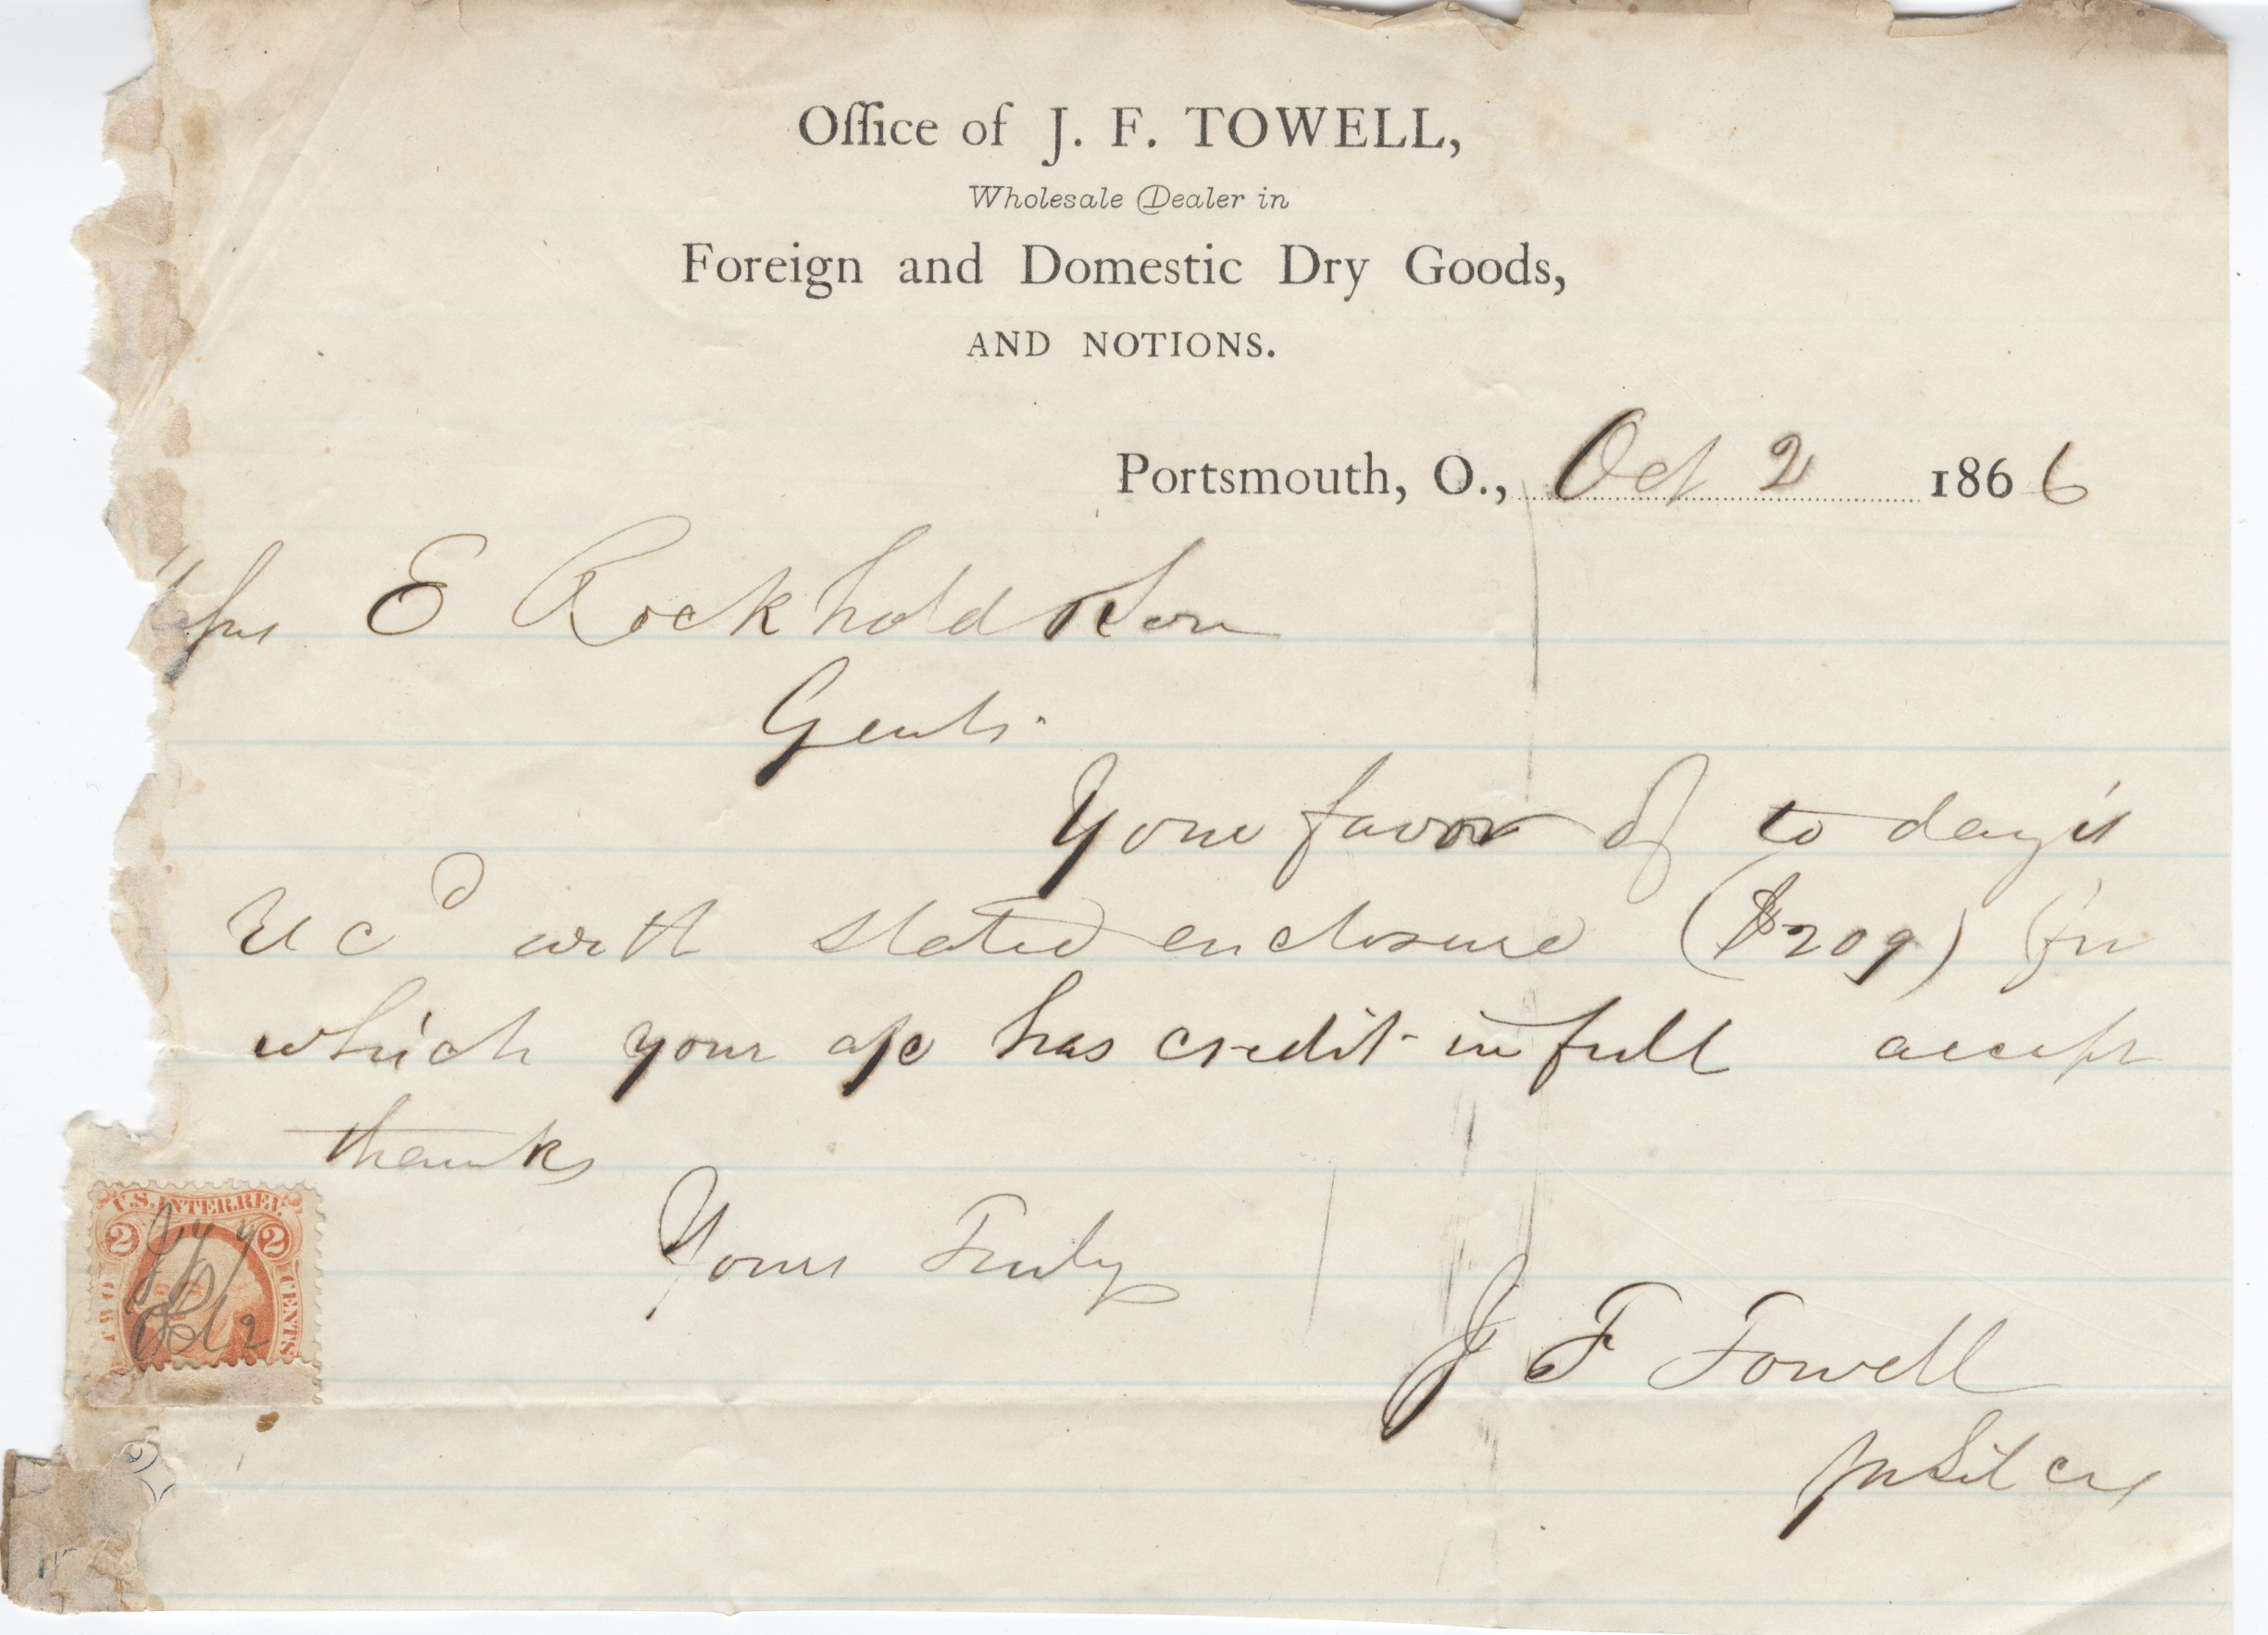 Office of J. F. TOWELL,
Wholesale Dealer in
Foreign and Domestic Dry Goods,
AND NOTIONS.
Portsmouth, O., Oct 2 1866
E Rockhold & Son
Gents.
Your favor of to day is
recd with stated enclosure ($209) for
which your a/c has credit in full accept
thanks
U.S. INTER. REV.
2 2
TWO CENTS
Oct 2
Yours Truly
J F Towell